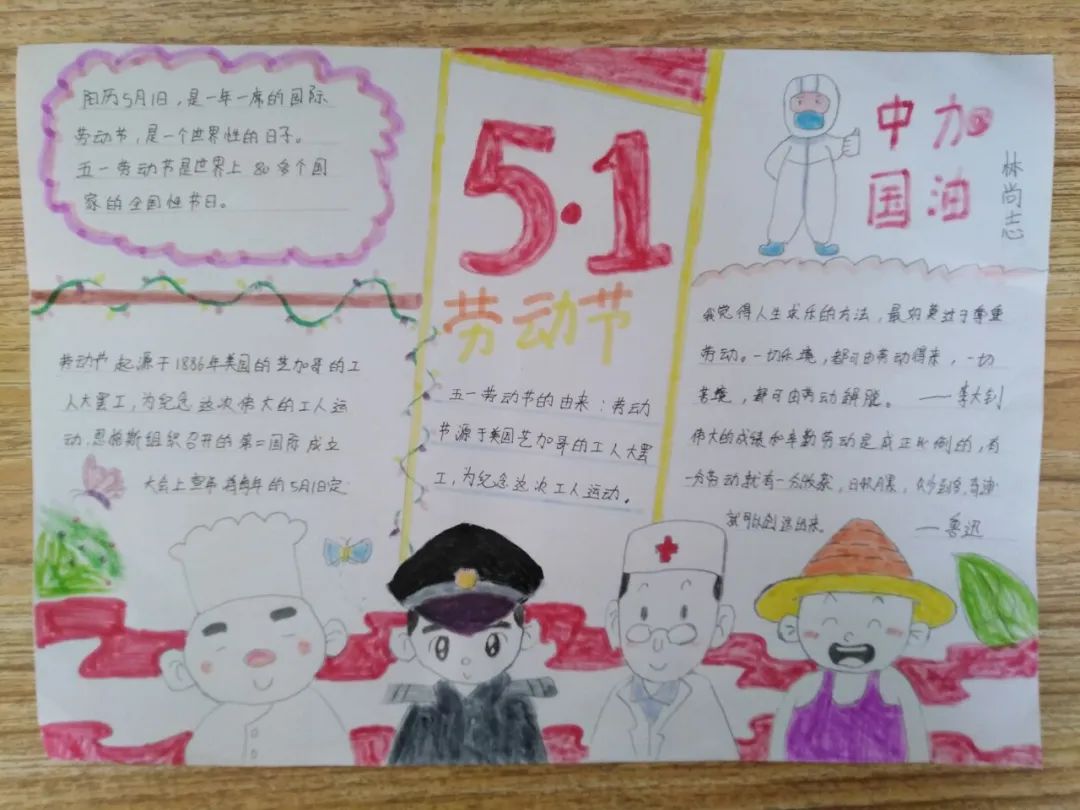 阳历5月1日，是一年一席的国际
劳动节，是一个世界性的日子。
五一劳动节是世界上80多个国
家的全国性节日。
劳动节起源于1886年美国的芝加哥的工
人大罢工，为纪念这次伟大的工人运
动，恩格斯组织召开的第二国际成立
大会上宣布将每年的5月1日定
5·1
劳动节
五一劳动节的由来：劳动
节源于美国芝加哥的工人大罢
工，为纪念这次工人运动。
中国
加油
林尚志
我觉得人生求乐的方法，最好莫过于尊重
劳动。一切乐境，都可由劳动得来，一切
苦境，都可由劳动解脱。——李大钊
伟大的成绩和辛勤劳动是成正比例的，有
一分劳动就有一分收获，日积月累，从少到多，奇迹
就可以创造出来。——鲁迅